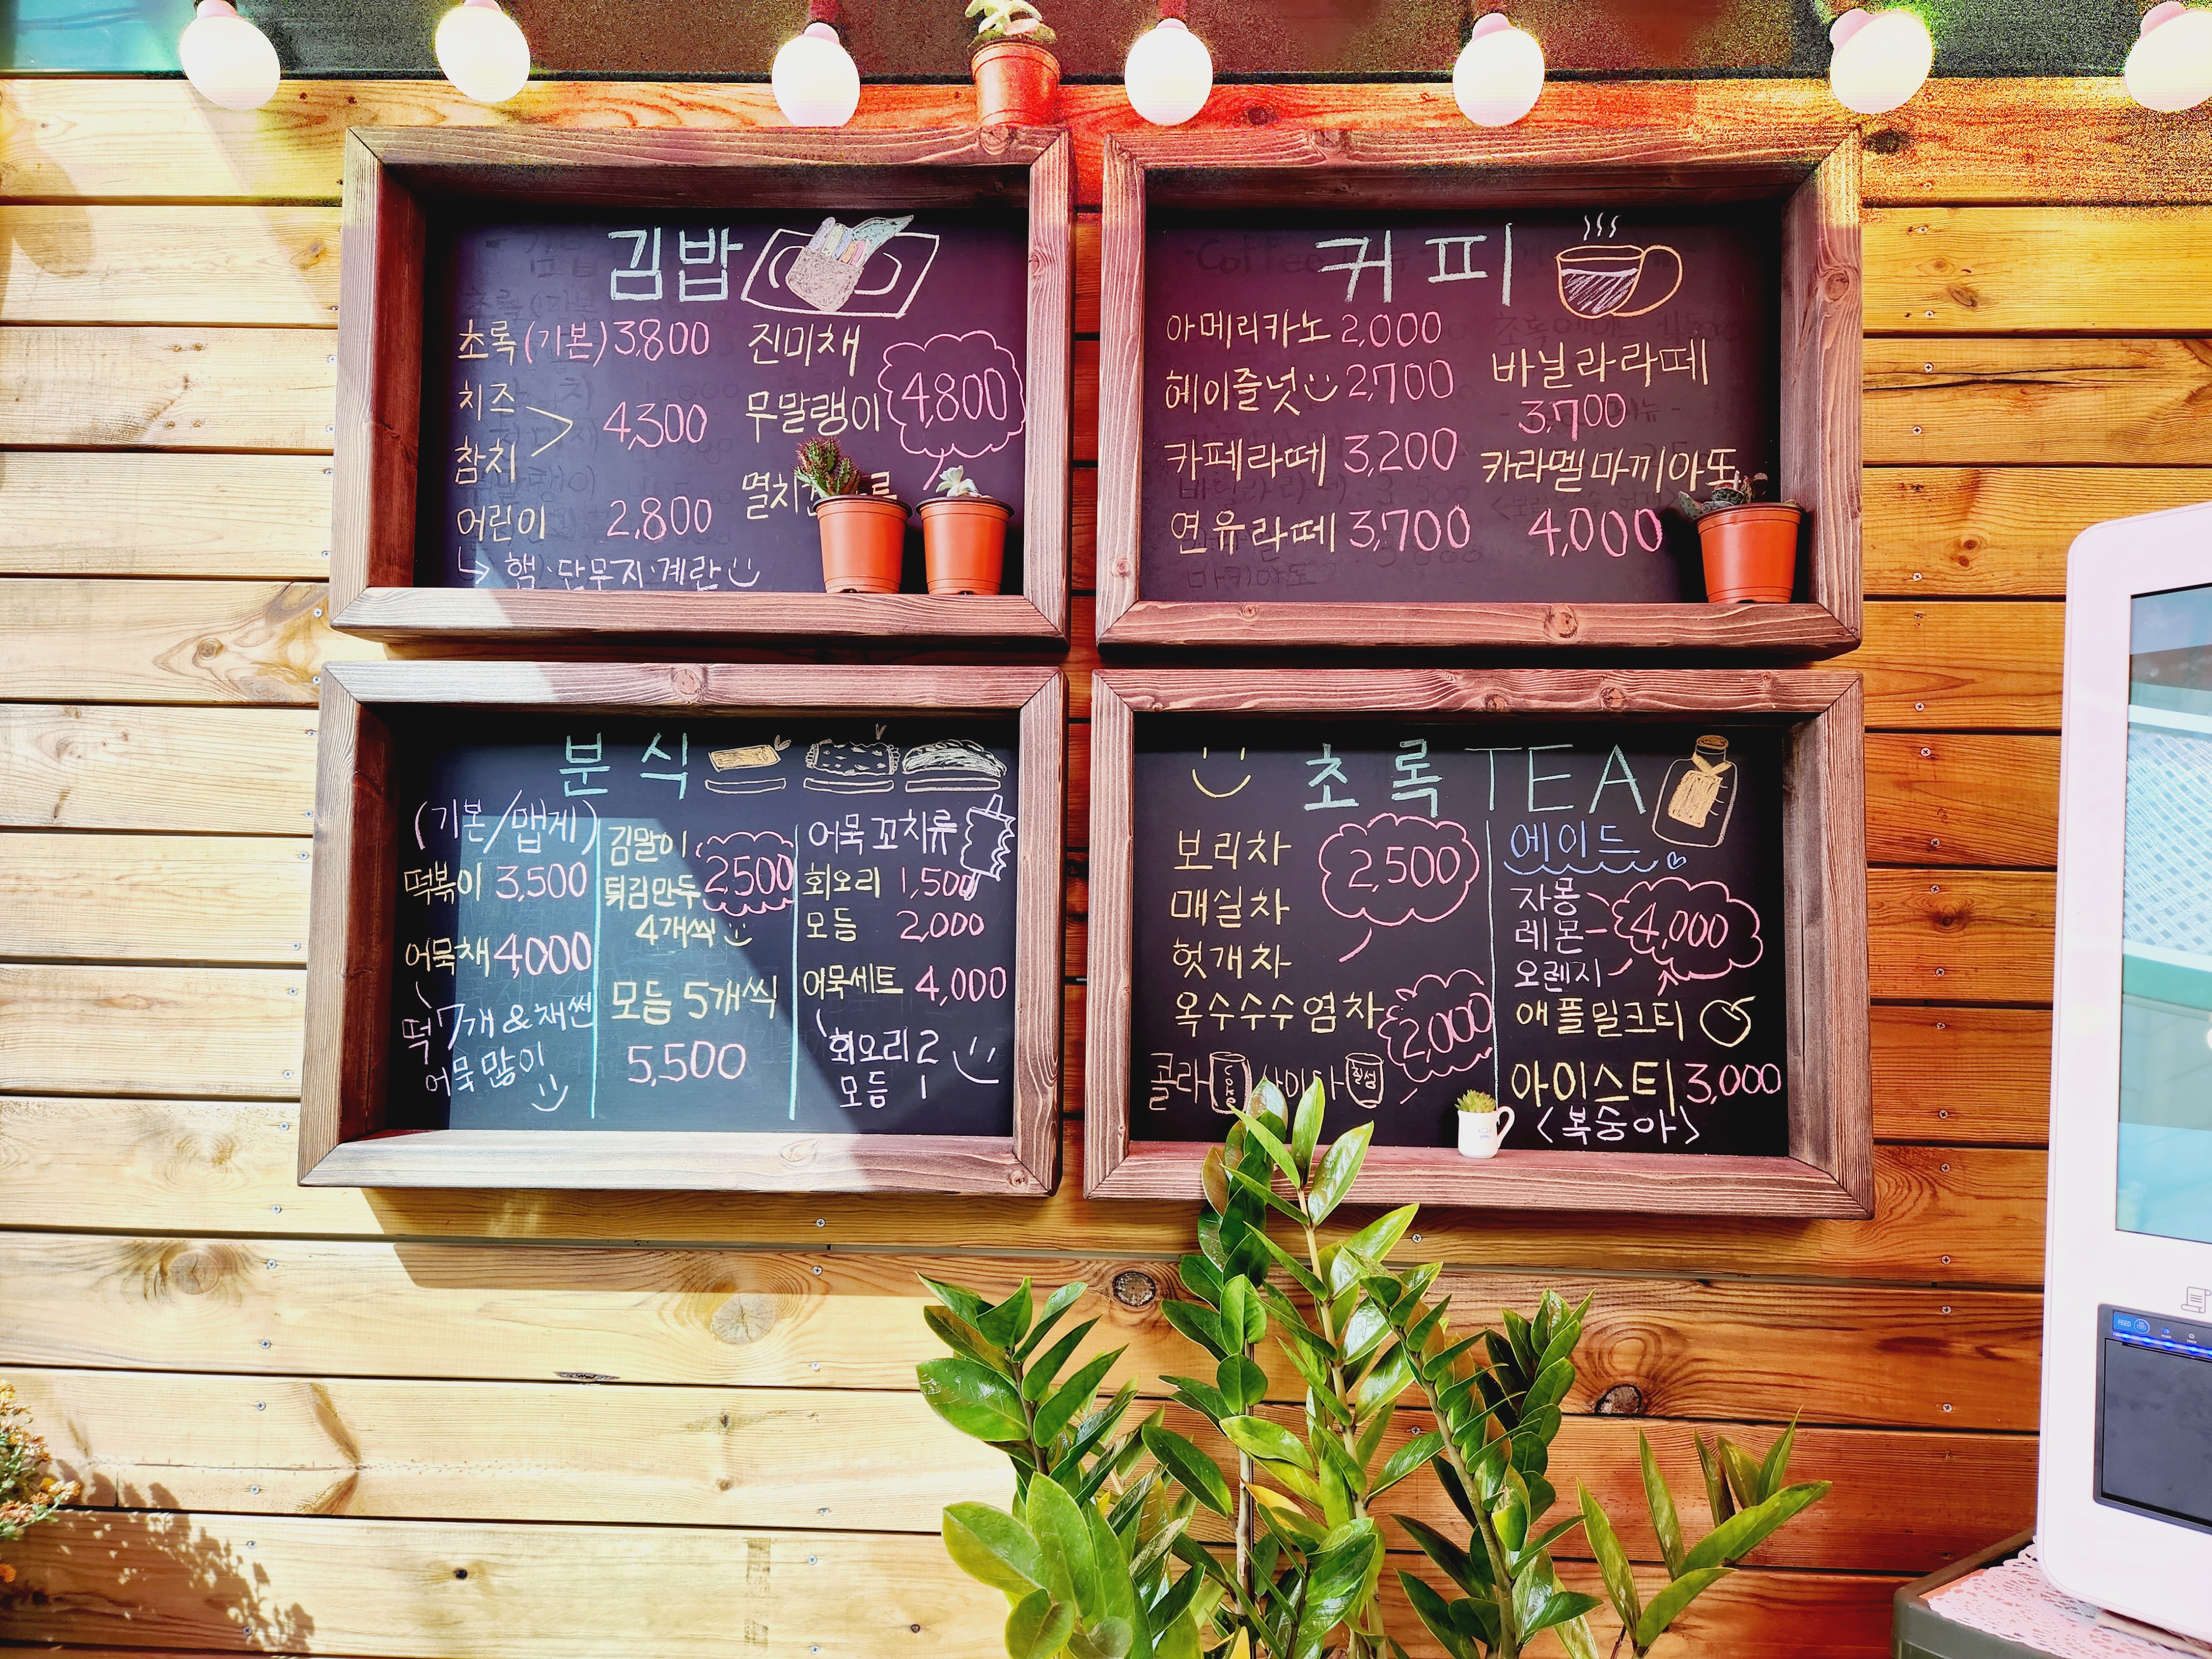 김밥
초록(기본) 3,800
치즈
참치
4,300
어린이 2,800
햄·단무지·계란
진미채
무말랭이
4,800
멸치
커피
아메리카노 2,000
헤이즐넛 2,700
카페라떼 3,200
연유라떼 3,700
바닐라라떼
3,700
카라멜마끼아또
4,000
분식
(기본/맵게)
떡볶이 3,500
어묵채 4,000
떡7개&채썬
어묵많이
김말이
튀김만두
2,500
4개씩
모듬 5개씩
5,500
어묵꼬치류
회오리 1,500
모듬 2,000
어묵세트 4,000
회오리 2
모듬 1
초록 TEA
보리차
매실차
헛개차
2,500
옥수수수염차
콜라
2,000
에이드
자몽
레몬
오렌지
4,000
애플밀크티
아이스티 3,000
<복숭아>
FEED